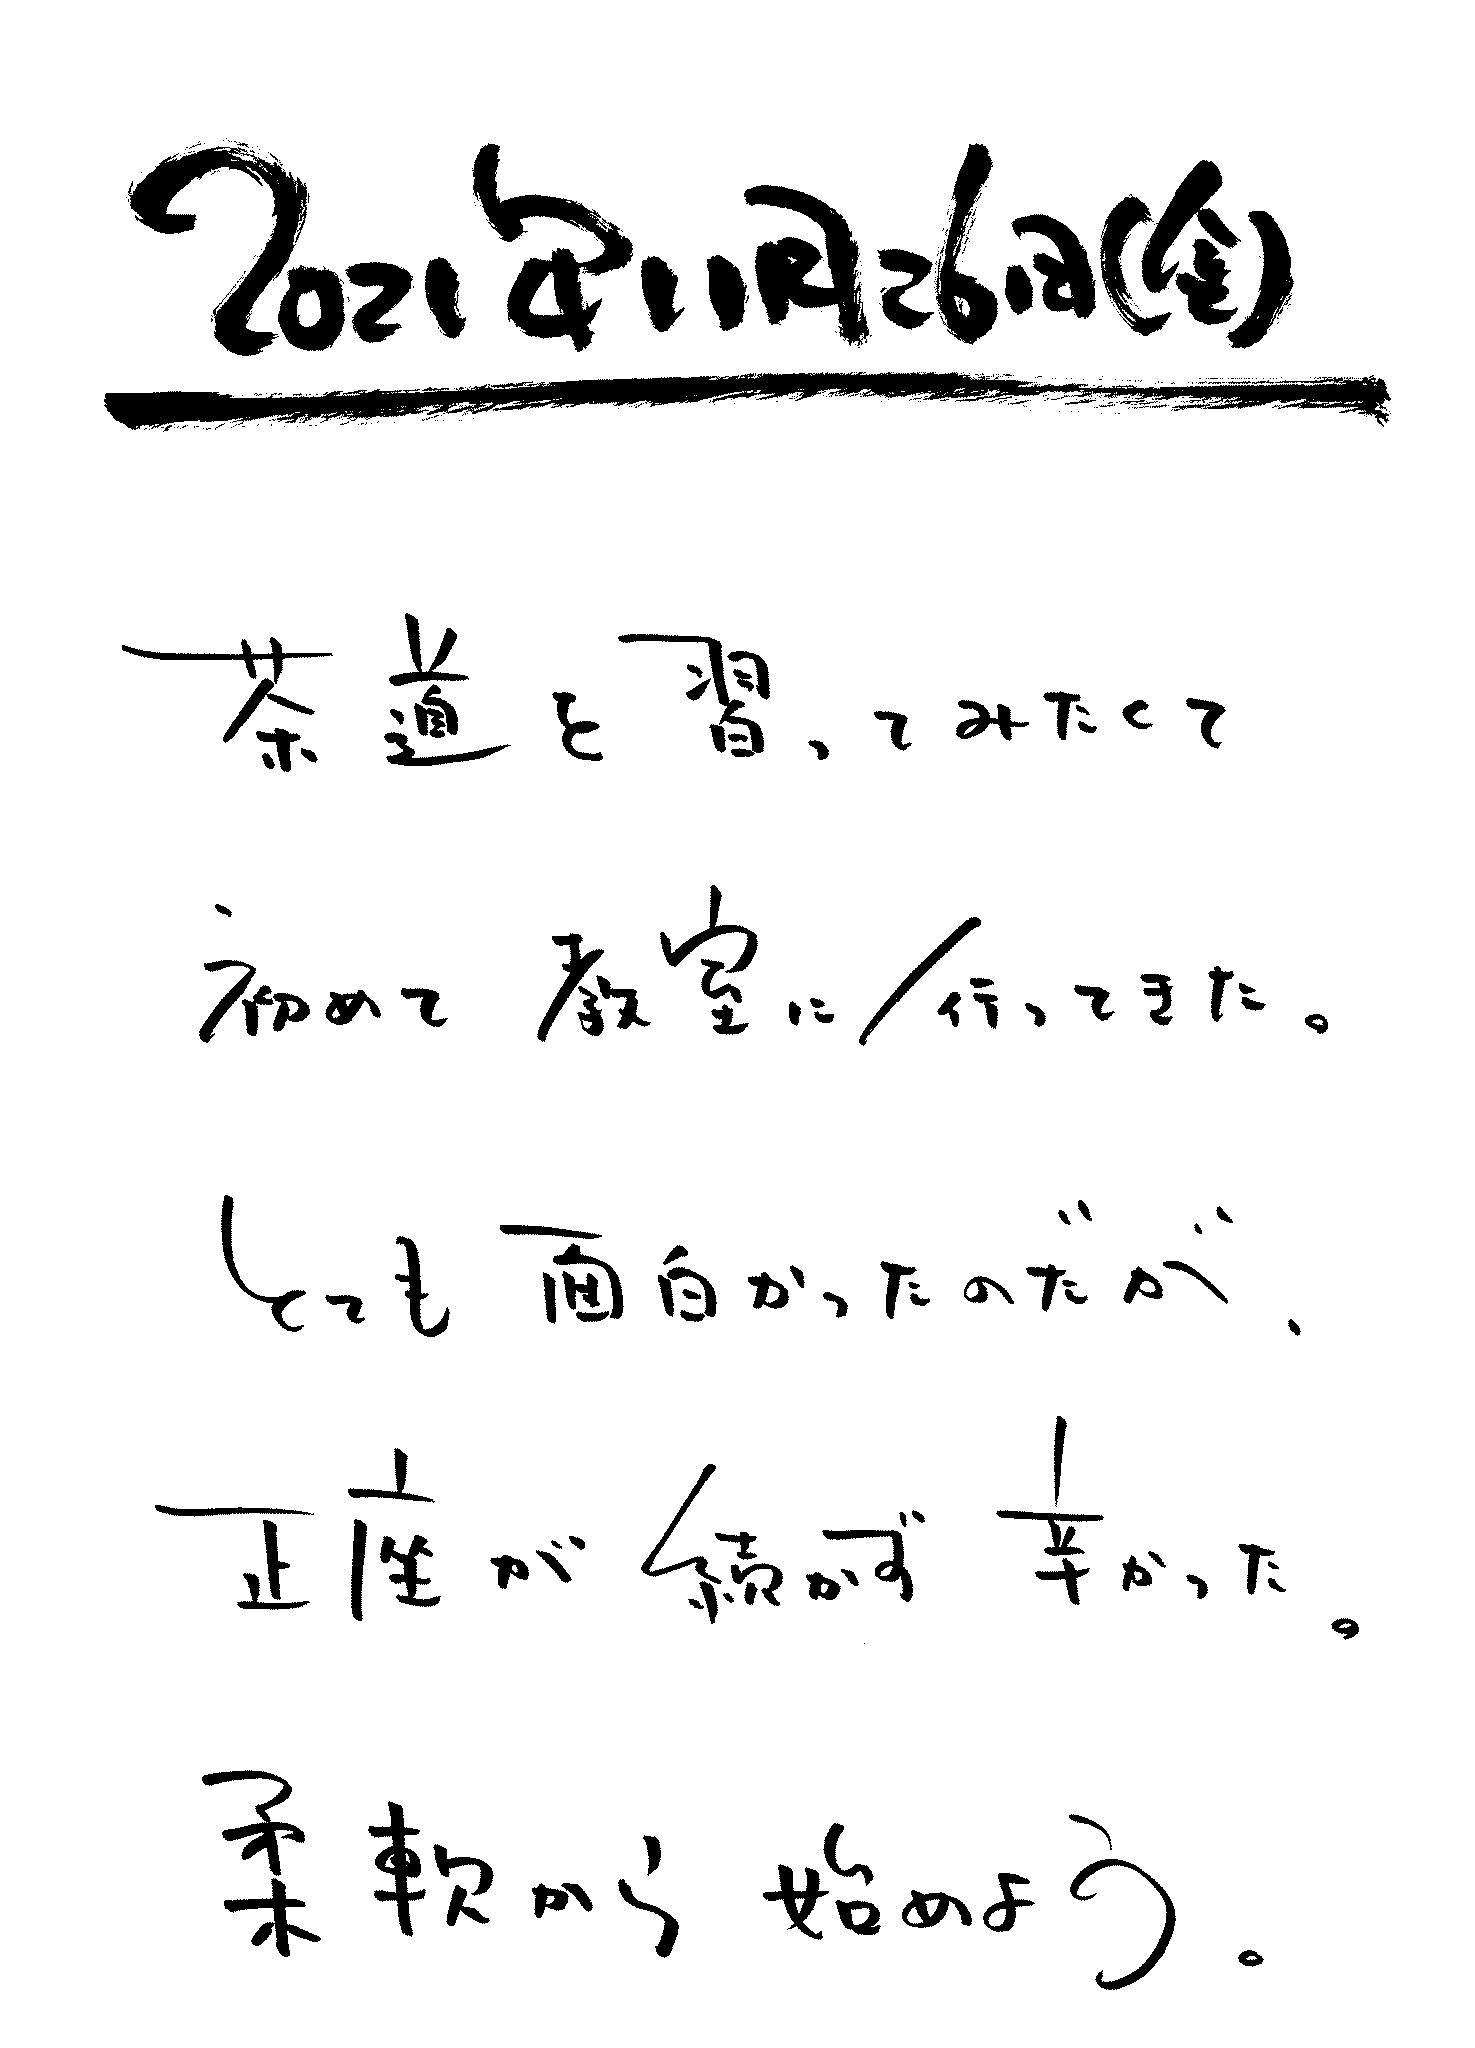 2021年11月26日(金)
茶道を習ってみたくて
初めて教室に行ってきた。
とても面白かったのだが、
正座が続かず辛かった。
柔軟から始めよう。